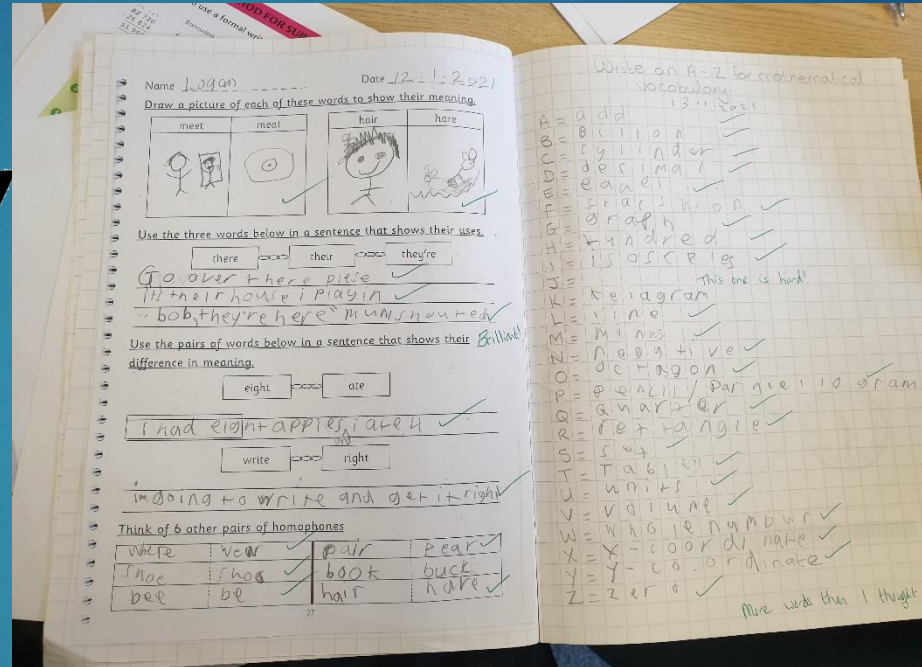 use a formal wri
OD FOR SUB
Name Logan
Date 12.1.2021
Draw a picture of each of these words to show their meaning.
meet meat hair hare
Use the three words below in a sentence that shows their uses.
there their they're
Go over there plese
its their house i playin
"bob, they're here" mum shouted
Use the pairs of words below in a sentence that shows their difference in meaning.
Brilliant!
eight ate
I had eight apples i ate 4
write right
im going to write and get it right
Think of 6 other pairs of homophones
Where wear pair pear
Shoe book buck
bee be hair hare
27
Write an A-Z for mathematical
vocabulary
A = add
B = Billion
C = cylinder
D = decimal
E =
F =
G = graph
H = hundred
I =
J = This one is hard!
K =
L = line
M = minus
N = negative
O = octagon
P =
Q = Quarter
R =
S =
T = Tables
U = units
V = volume
W = whole numbur
X = X-coordinate
Y = Y-co.ordinate
Z = zero
More words than I thought